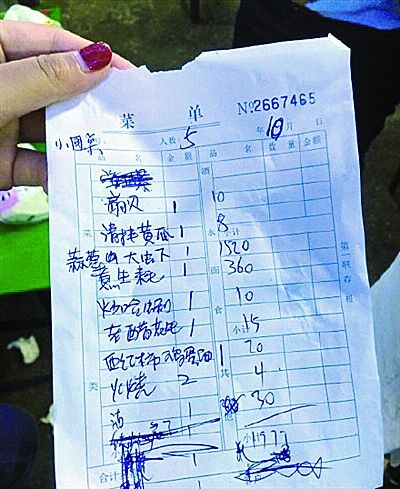 菜 单 №2667465
小团菜 人数: 5 年 10 月 日
品 名 金 额 品 名 数 量 金 额
酒
扇贝 1 10
菜 清拌黄瓜 1 水 小计 8
蒜蓉 大虾 1520
生蚝 面 360
1 食 10
老醋花生 1 小计 15
西红柿鸡蛋汤 1 20
类 火烧 2 其 4
酒 1 30
小计 1977
合计 1
第一联存根